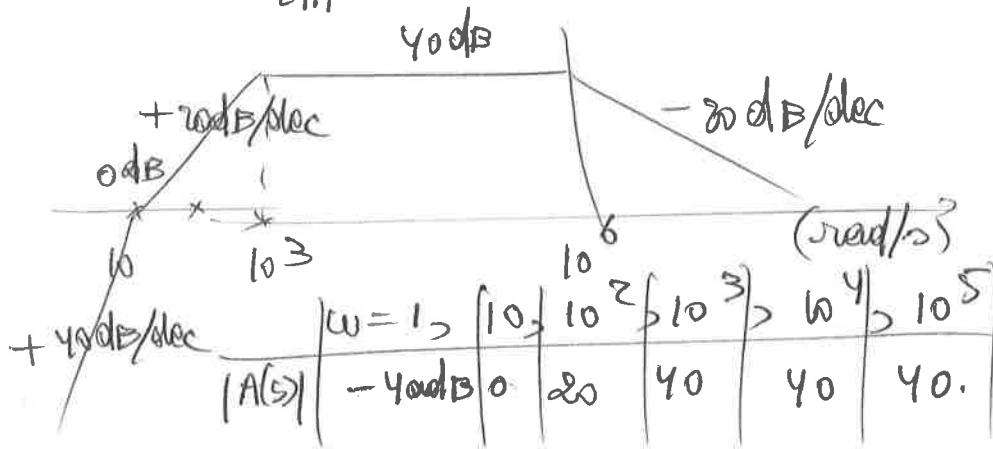 40dB
+20dB/dec
-20dB/dec
0dB
10
10³
10⁶
(rad/s)
+40dB/dec
ω=1, 10, 10², 10³, 10⁴, 10⁵
|A(s)| -40dB 0 20 40 40 40.